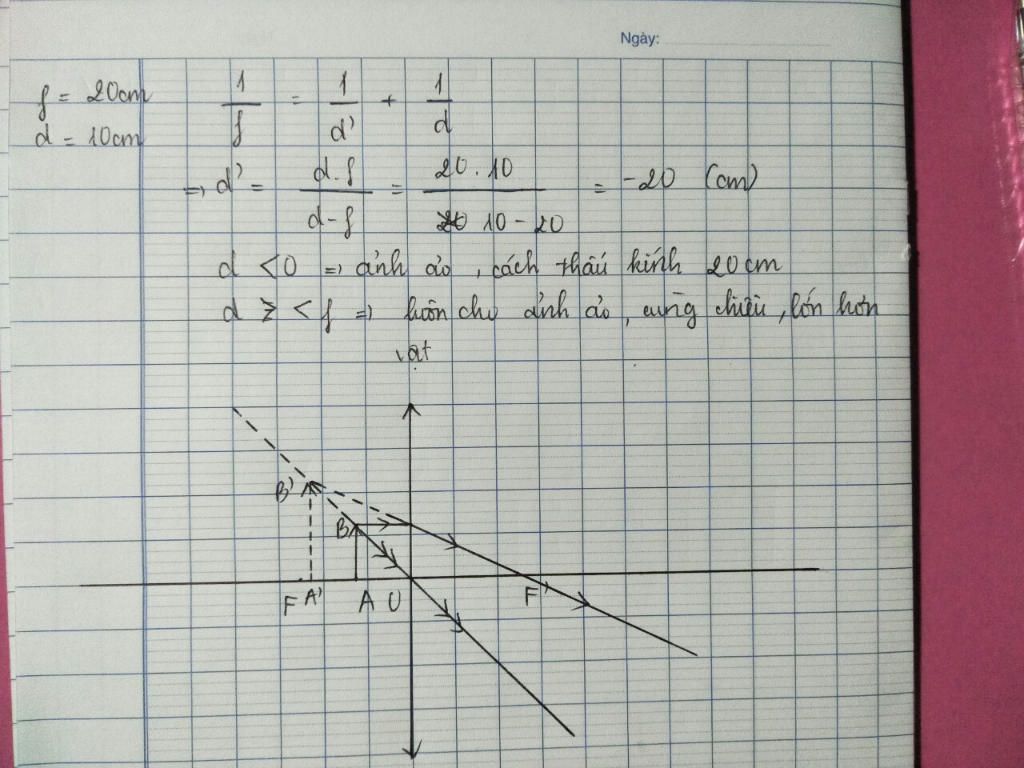 Ngày:
f = 20cm
d = 10cm
1/f = 1/d' + 1/d
=> d' = d.f/d-f = 20.10/10-20 = -20 (cm)
d < 0 => ảnh ảo, cách thấu kính 20cm
d < f => luôn cho ảnh ảo, cùng chiều, lớn hơn
vật
B'
B
F A' A O F'